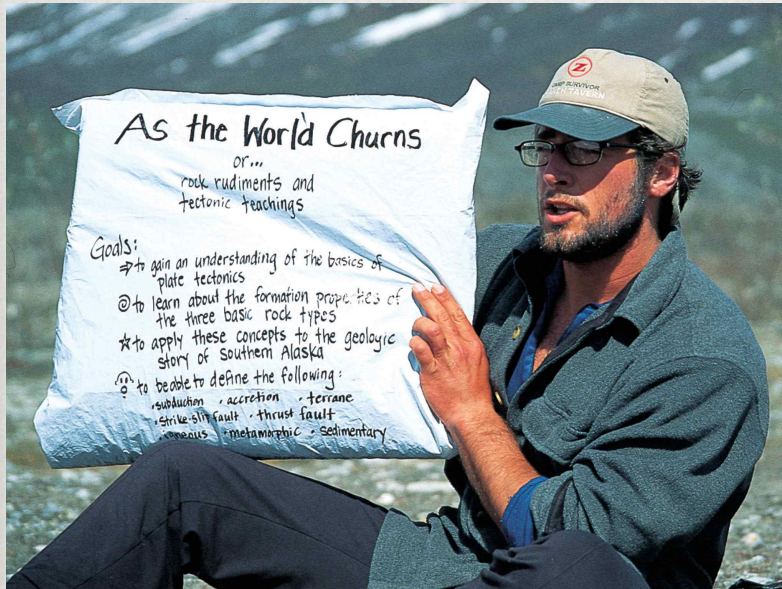 As the World Churns
or...
rock rudiments and
tectonic teachings
Goals:
to gain an understanding of the basics of
plate tectonics
to learn about the formation properties of
the three basic rock types
to apply these concepts to the geologic
story of Southern Alaska
to be able to define the following:
• subduction • accretion • terrane
• strike-slip fault • thrust fault
• igneous • metamorphic • sedimentary
Z
SURVIVOR
TAVERN